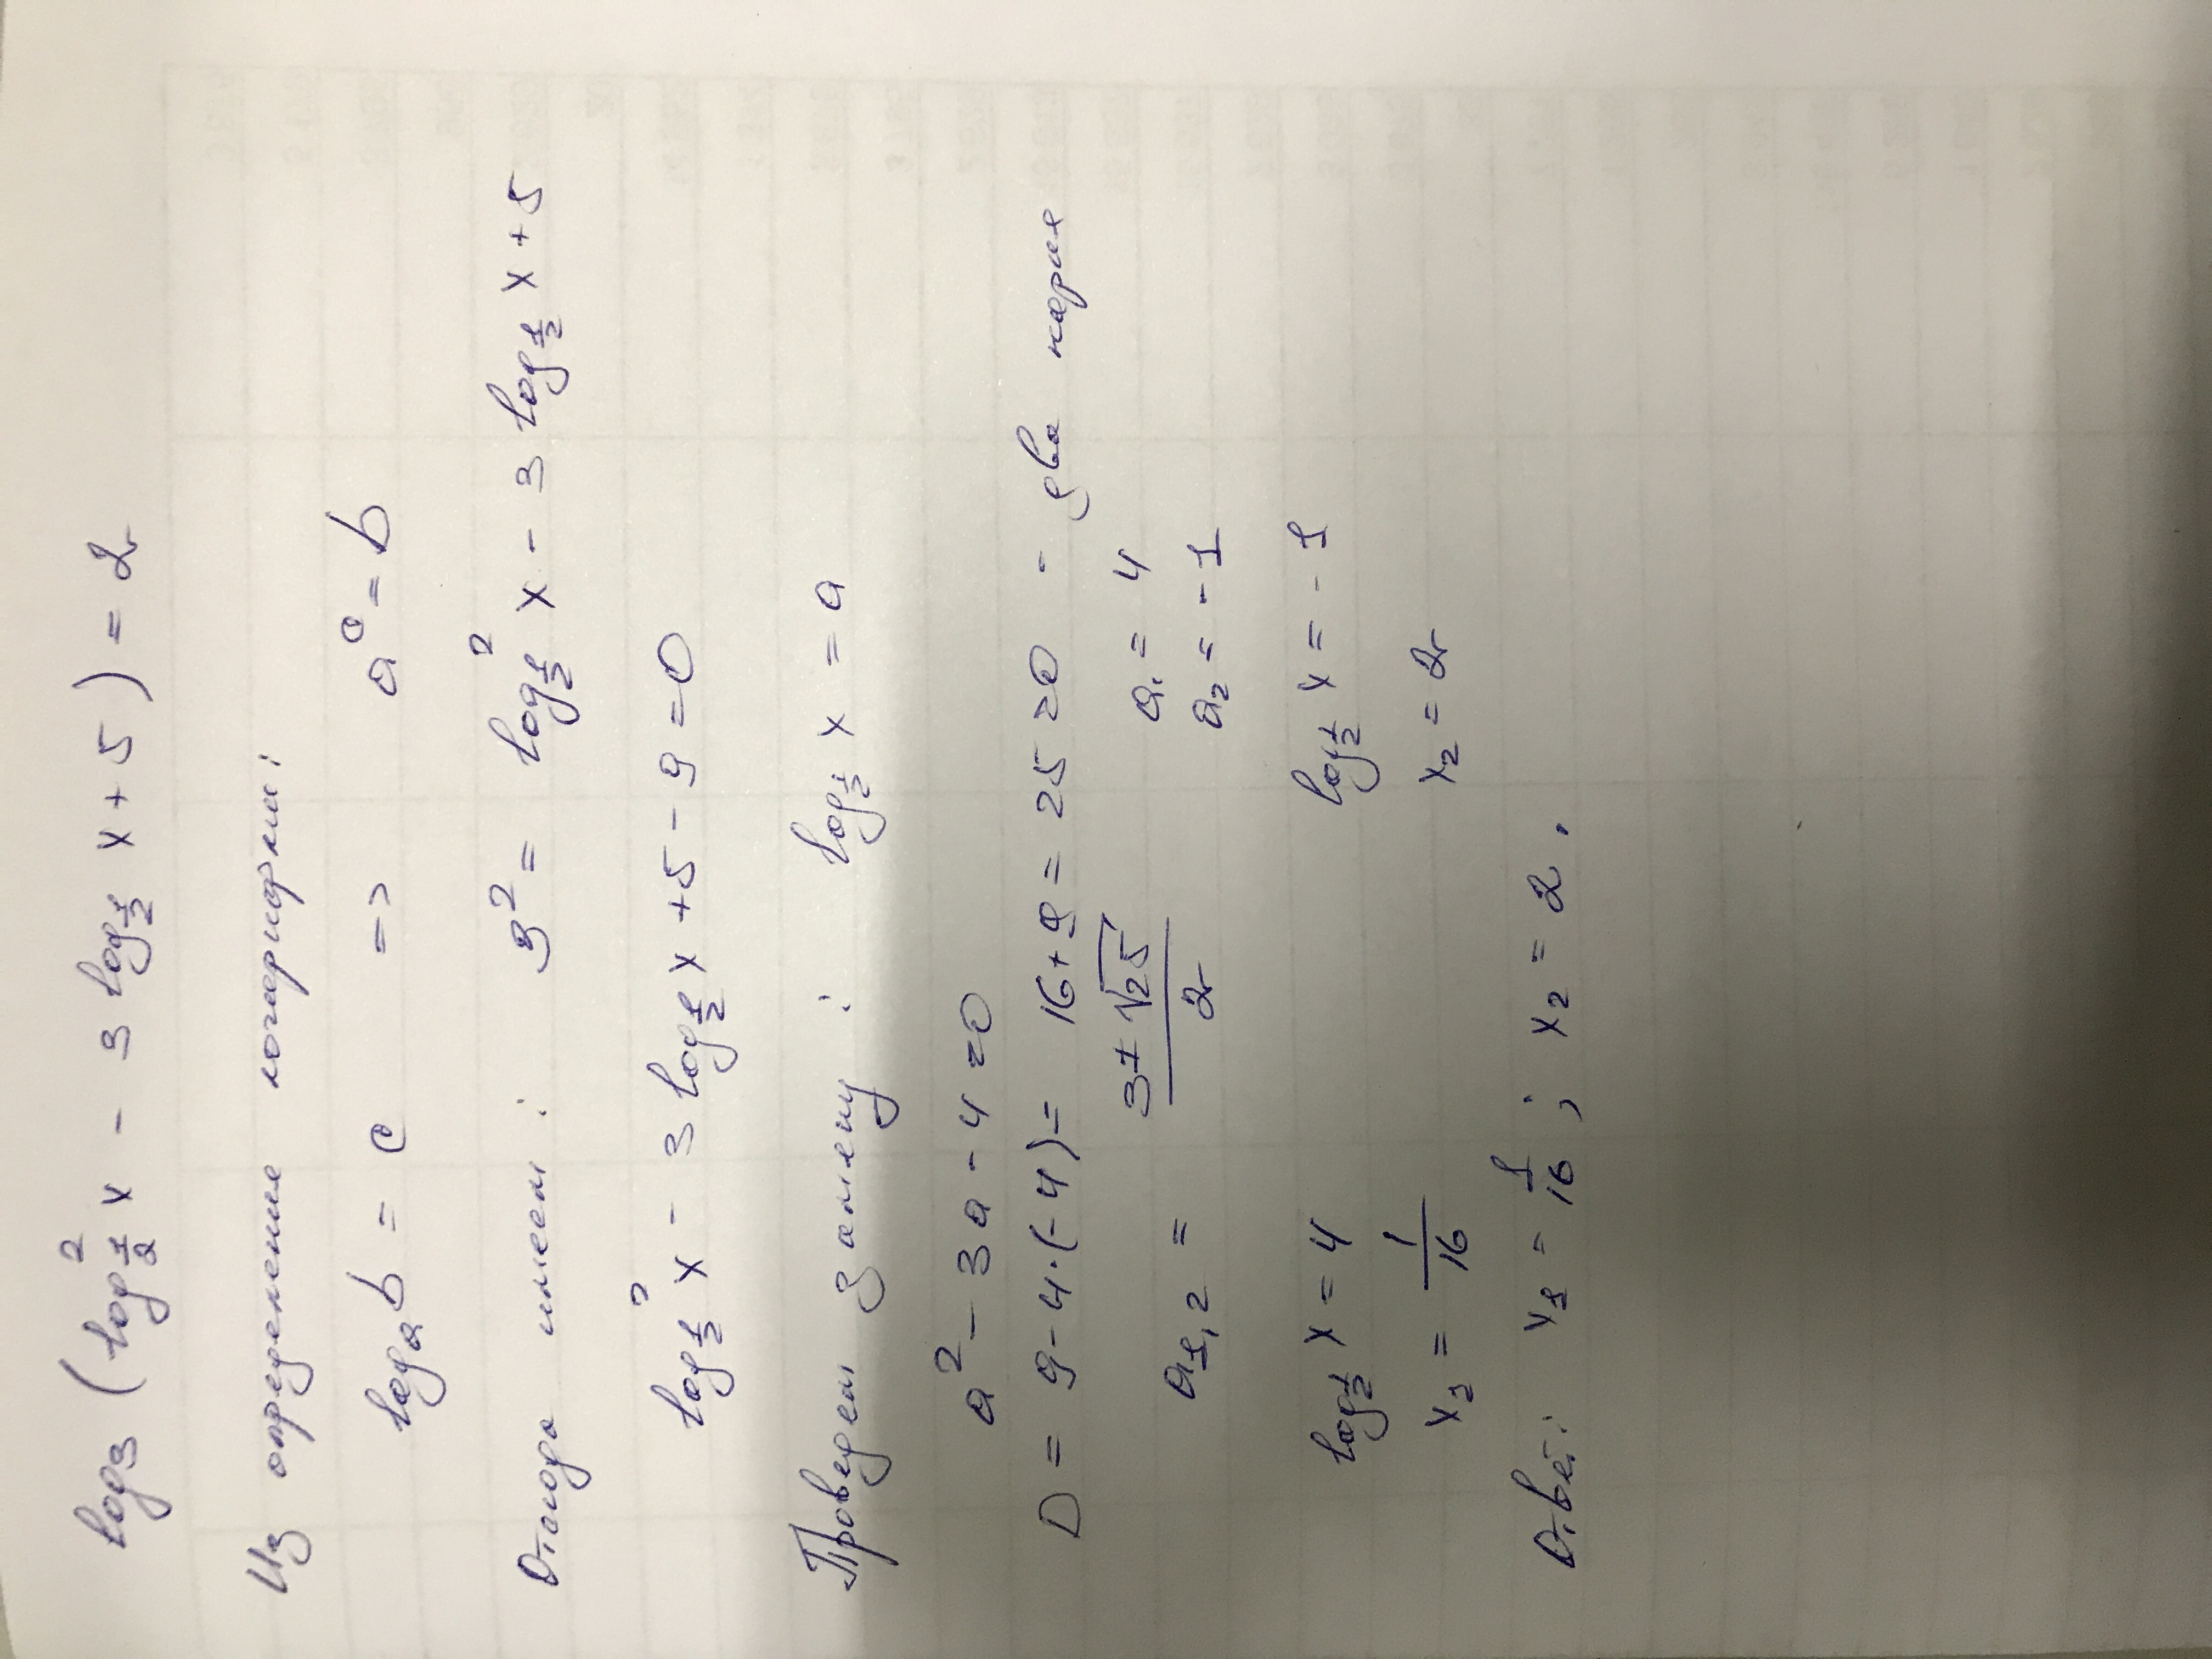 log₃ (log²_{1/2} x - 3 log_{1/2} x + 5) = 2
Из определения логарифма:
logₐ b = c => aᶜ = b
Отсюда имеем: 3² = log²_{1/2} x - 3 log_{1/2} x + 5
log²_{1/2} x - 3 log_{1/2} x + 5 - 9 = 0
Проведем замену: log_{1/2} x = a
a² - 3a - 4 = 0
D = 9 - 4·(-4) = 16 + 9 = 25 ≥ 0 - два корня
a₁,₂ = (3 ± √25)/2 a₁ = 4
a₂ = -1
log_{1/2} x = 4 log_{1/2} x = -1
x₁ = 1/16 x₂ = 2
Ответ: x₁ = 1/16; x₂ = 2.